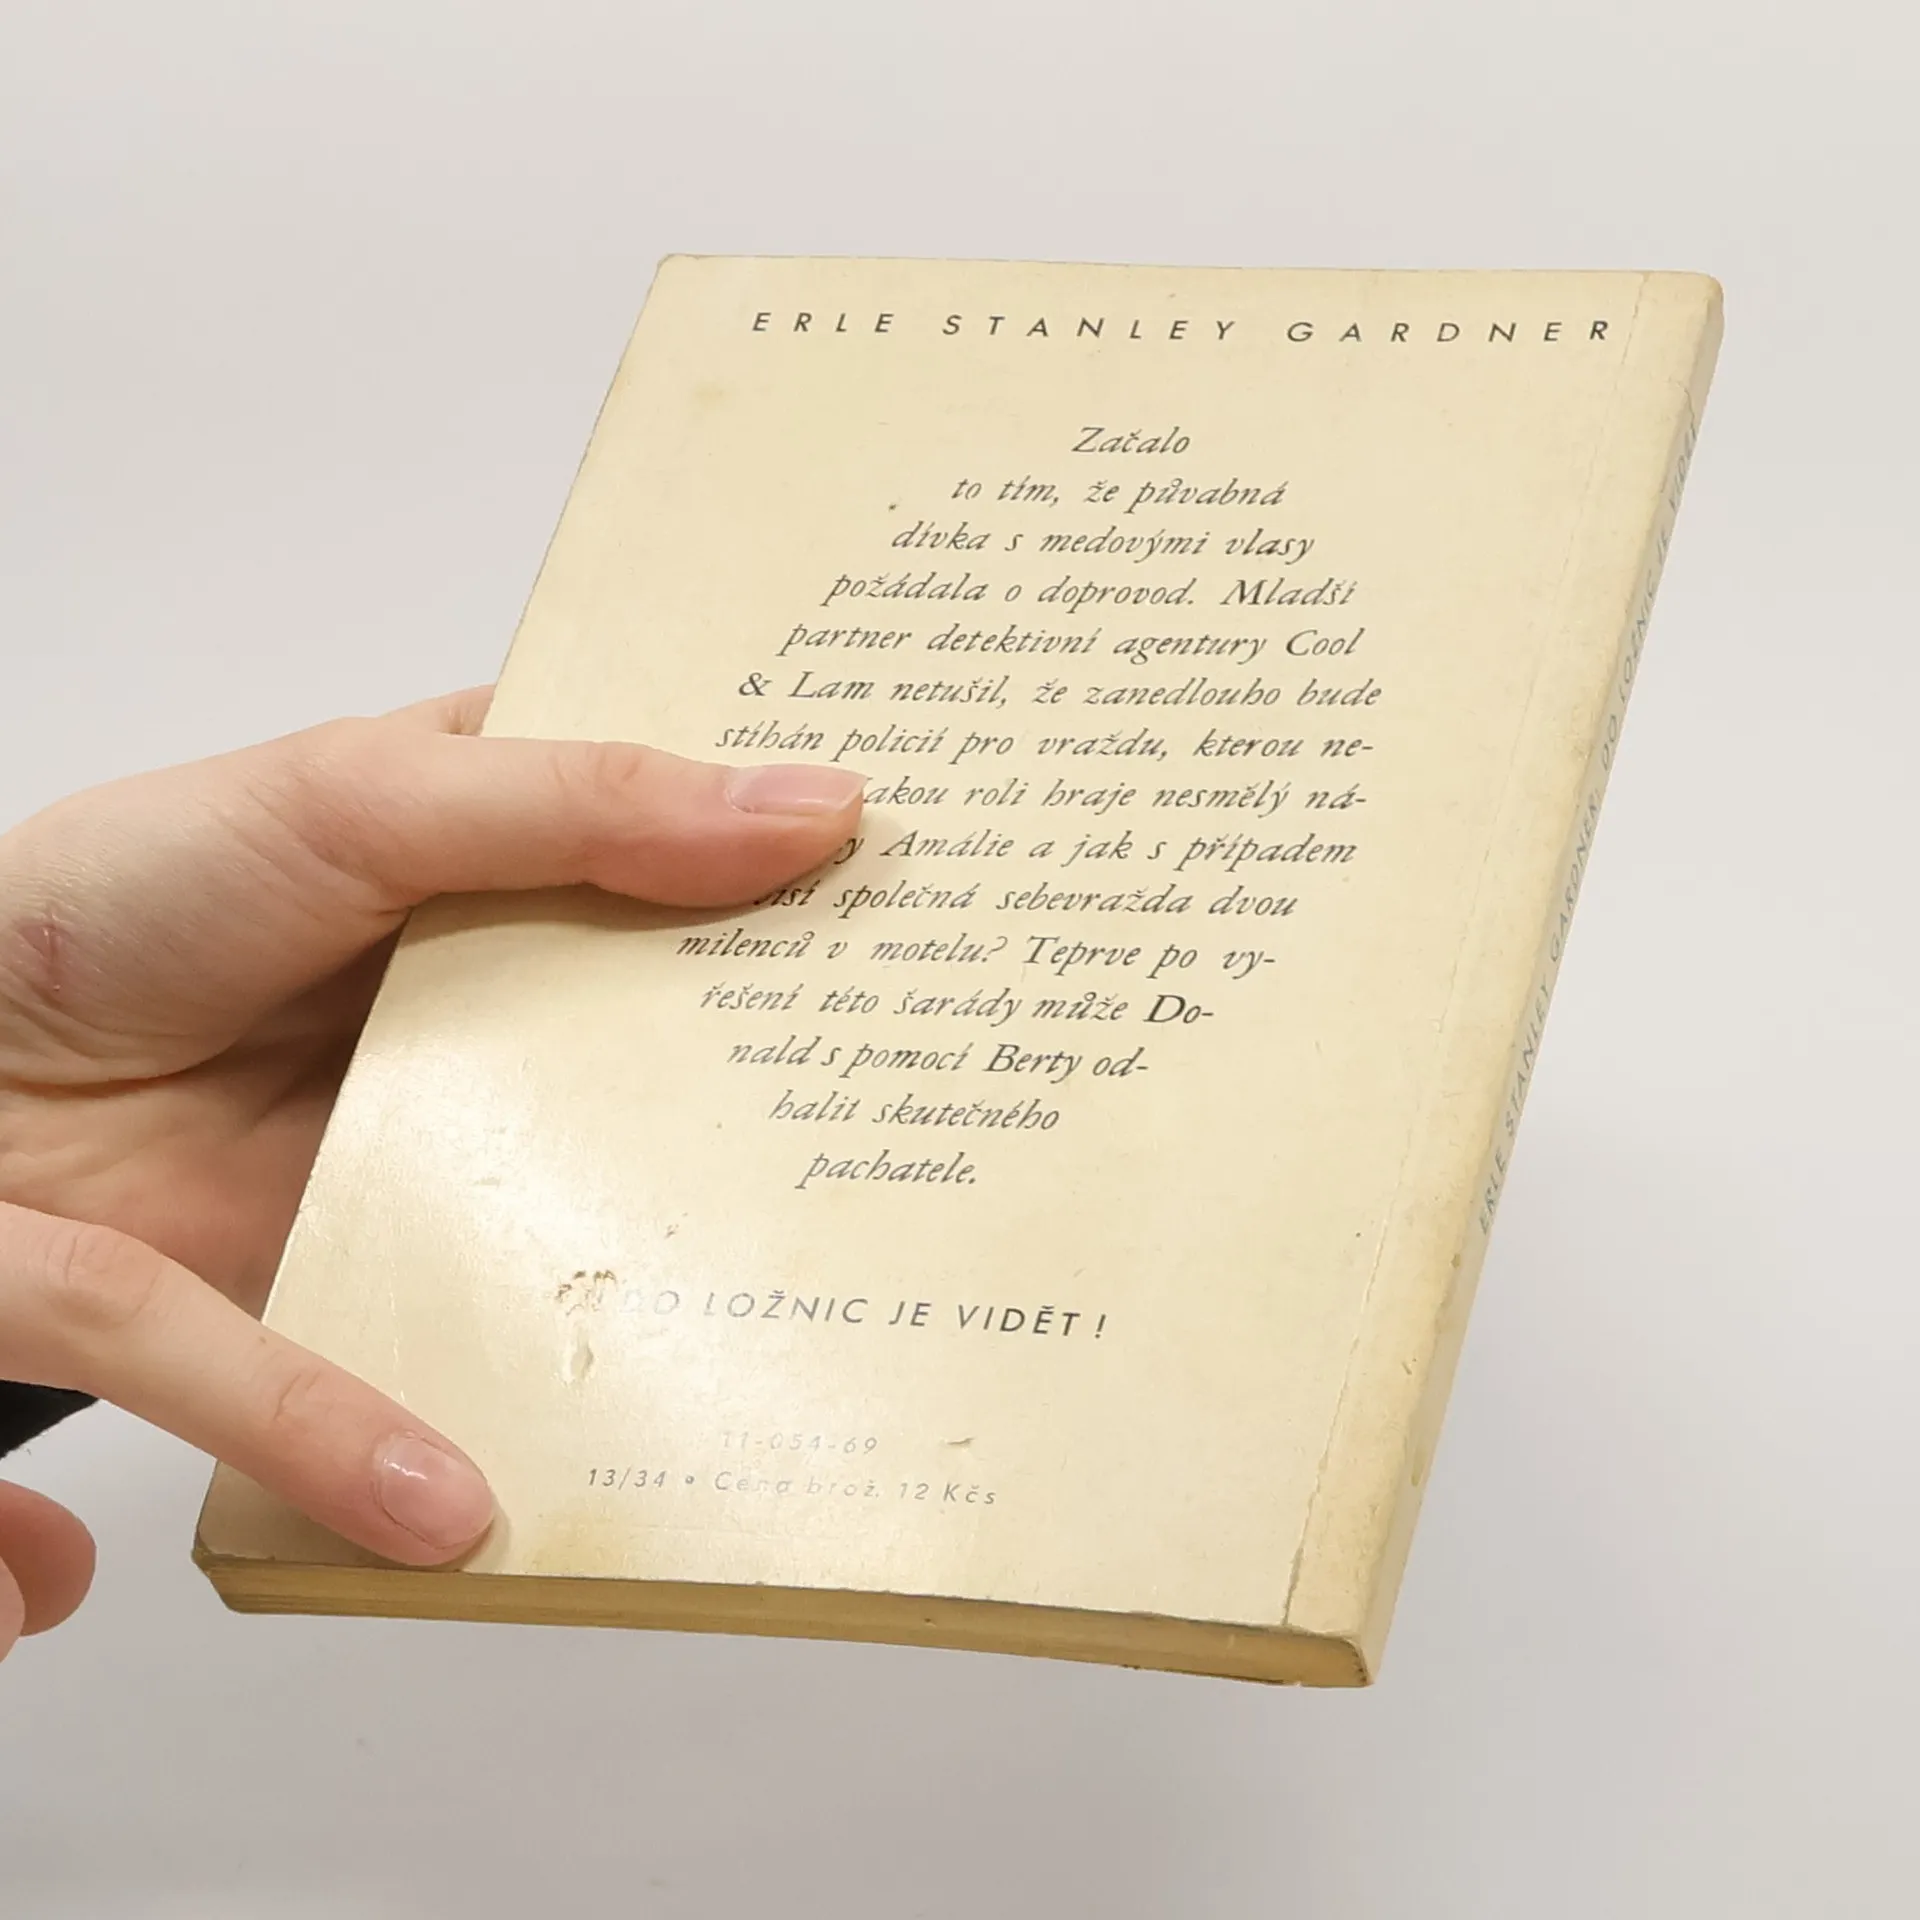 ERLE STANLEY GARDNER
Začalo
to tím, že půvabná
dívka s medovými vlasy
požádala o doprovod. Mladší
partner detektivní agentury Cool
& Lam netušil, že zanedlouho bude
stíhán policií pro vraždu, kterou ne-
Jakou roli hraje nesmělý ná-
Amálie a jak s případem
společná sebevražda dvou
milenců v motelu? Teprve po vy-
řešení této šarády může Do-
nald s pomocí Berty od-
halit skutečného
pachatele.
DO LOŽNIC JE VIDĚT!
11-054-69
13/34 • Cena brož. 12 Kčs
ERLE STANLEY GARDNER: DO LOŽNIC JE VIDĚT